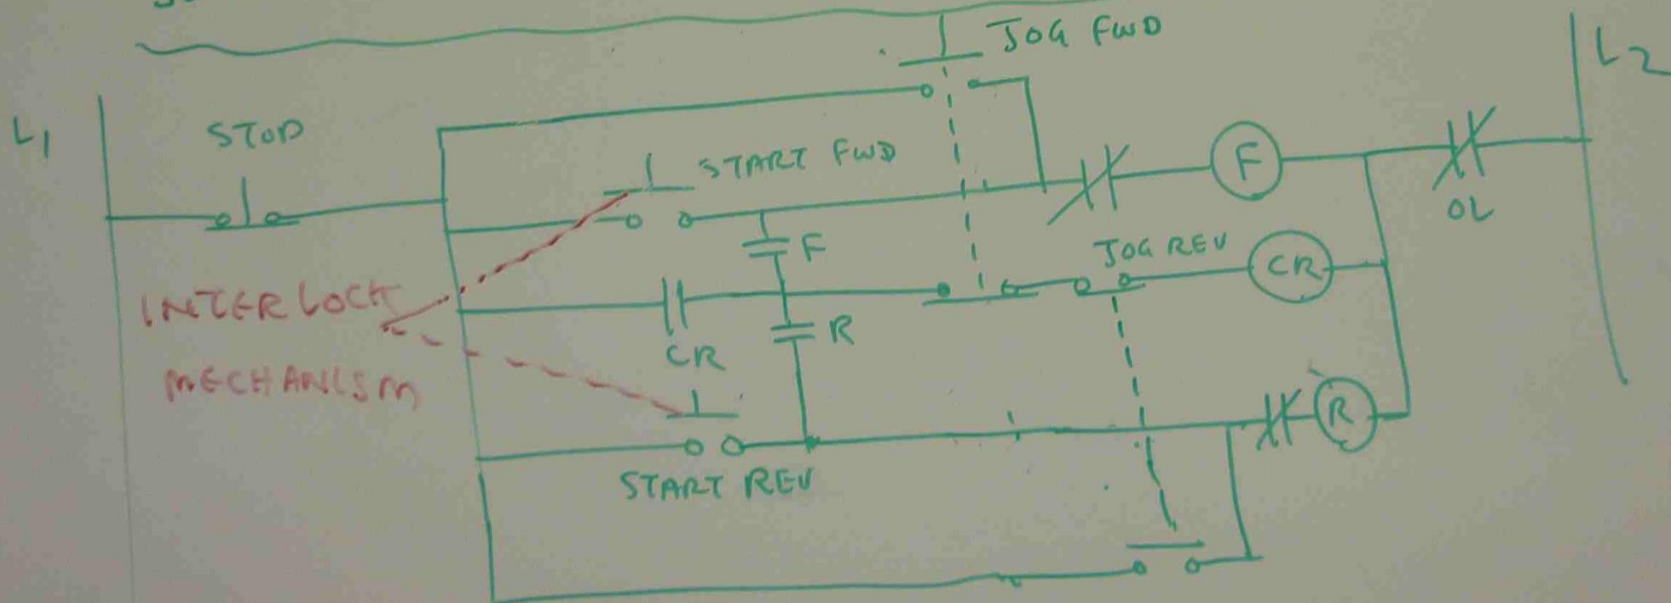 JOG FWD
L2
L1
STOP
START FWD
F
OL
F
JOG REV
CR
INTERLOCK
MECHANISM
CR
R
R
START REV